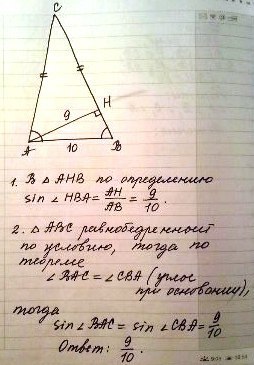 C
9
H
A
10
B
1. В △ AHB по определению
sin ∠ HBA = AH/AB = 9/10.
2. △ ABC равнобедренный
по условию, тогда по
теореме
∠ BAC = ∠ CBA (углы
при основании),
тогда
sin ∠ BAC = sin ∠ CBA = 9/10
Ответ: 9/10.